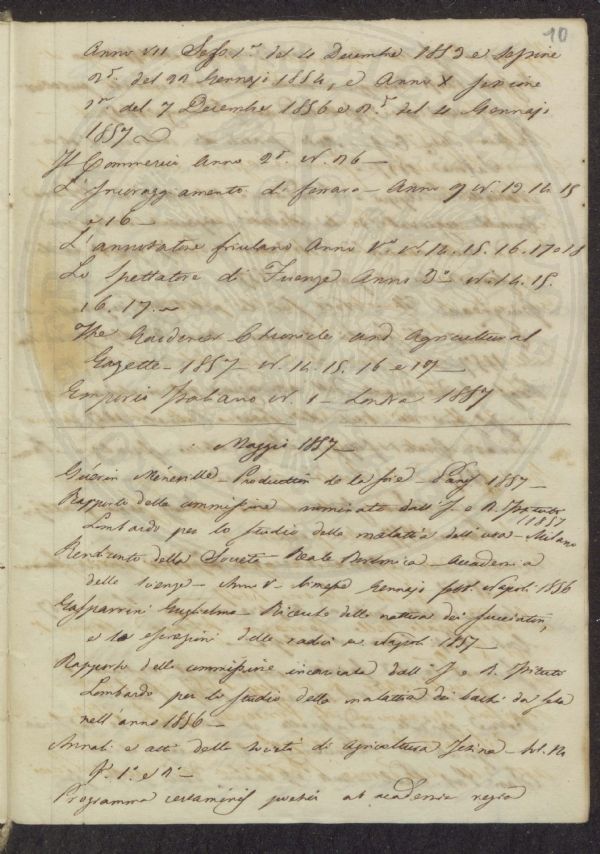 10
Anno VII Sess. 1ª del 4 Decembre 1853 e
2ª. del 22 Gennajo 1854, e Anno X
1ª del 7 Decembre 1856 e 2ª. del 4 Gennajo
1857
Il Commercio Anno 2º. N. 26 —
L'Incoraggiamento di Ferrara — Anno 9 N. 13. 14. 15
e 16 —
L'annotatore friulano Anno Vº N. 14. 15. 16. 17 e 18
Lo Spettatore di Firenze Anno 3º N. 14. 15.
16. 17. —
The Gardeners Chronicle and Agricultural
Gazette — 1857 — N. 14. 15. 16 e 17 —
Emporio Italiano N. 1 — Londra 1857
Maggio 1857 —
Guérin Méneville — Production de la soie — Paris 1857 —
Rapporto della commissione nominata dall'I. e R. Istituto
Lombardo per lo studio della malattia dell'uva — Milano 1857
Rendiconto della Società Reale Borbonica — Accademia
delle Scienze — Anno V — Bimestre Gennajo Napoli 1856
Gasparrini Guglielmo — Ricerche della natura dei succiatori,
e la escrezione delle radici Napoli 1857 —
Rapporto della commissione incaricata dall'I. e R. Istituto
Lombardo per lo studio della malattia dei bachi da seta
nell'anno 1856 —
Annali e atti della società di agricoltura Jesina —
F. 1º. e 2º —
Programma certaminis ab academia regia